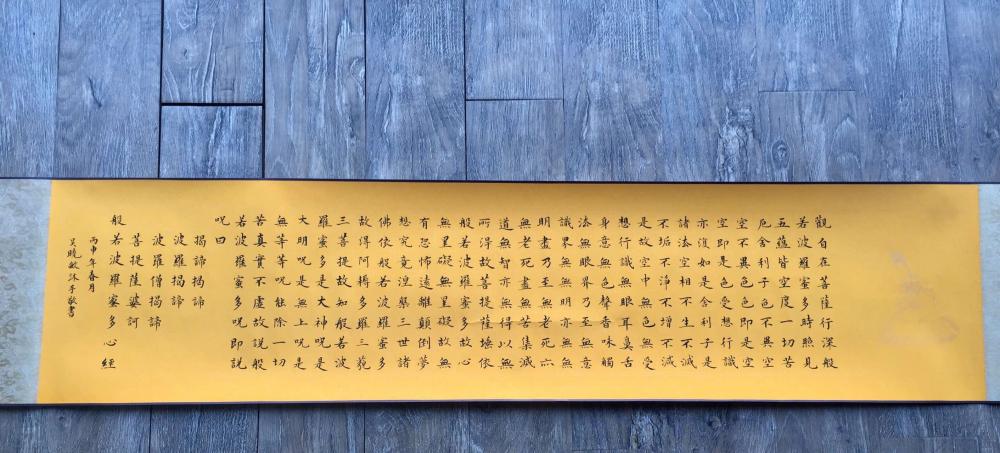 觀自在菩薩行深般
若波羅蜜多時照見
五蘊皆空度一切苦
厄舍利子色不異空
空不異色色即是空
空即是色受想行識
亦復如是舍利子是
諸法空相不生不滅
不垢不淨不增不減
是故空中無色無受
想行識無眼耳鼻舌
身意無色聲香味觸
法無眼界乃至無意
識界無無明亦無無
明盡乃至無老死亦
無老死盡無苦集滅
道無智亦無得以無
所得故菩提薩埵依
般若波羅蜜多故心
無罣礙無罣礙故無
有恐怖遠離顛倒夢
想究竟涅槃三世諸
佛依般若波羅蜜多
故得阿耨多羅三藐
三菩提故知般若波
羅蜜多是大神呪是
大明呪是無上呪是
無等等呪能除一切
苦真實不虛故說般
若波羅蜜多呪即說
呪曰
揭諦揭諦
波羅揭諦
波羅僧揭諦
菩提薩婆訶
般若波羅蜜多心經
丙申年春月
吴曉敏沐手敬書